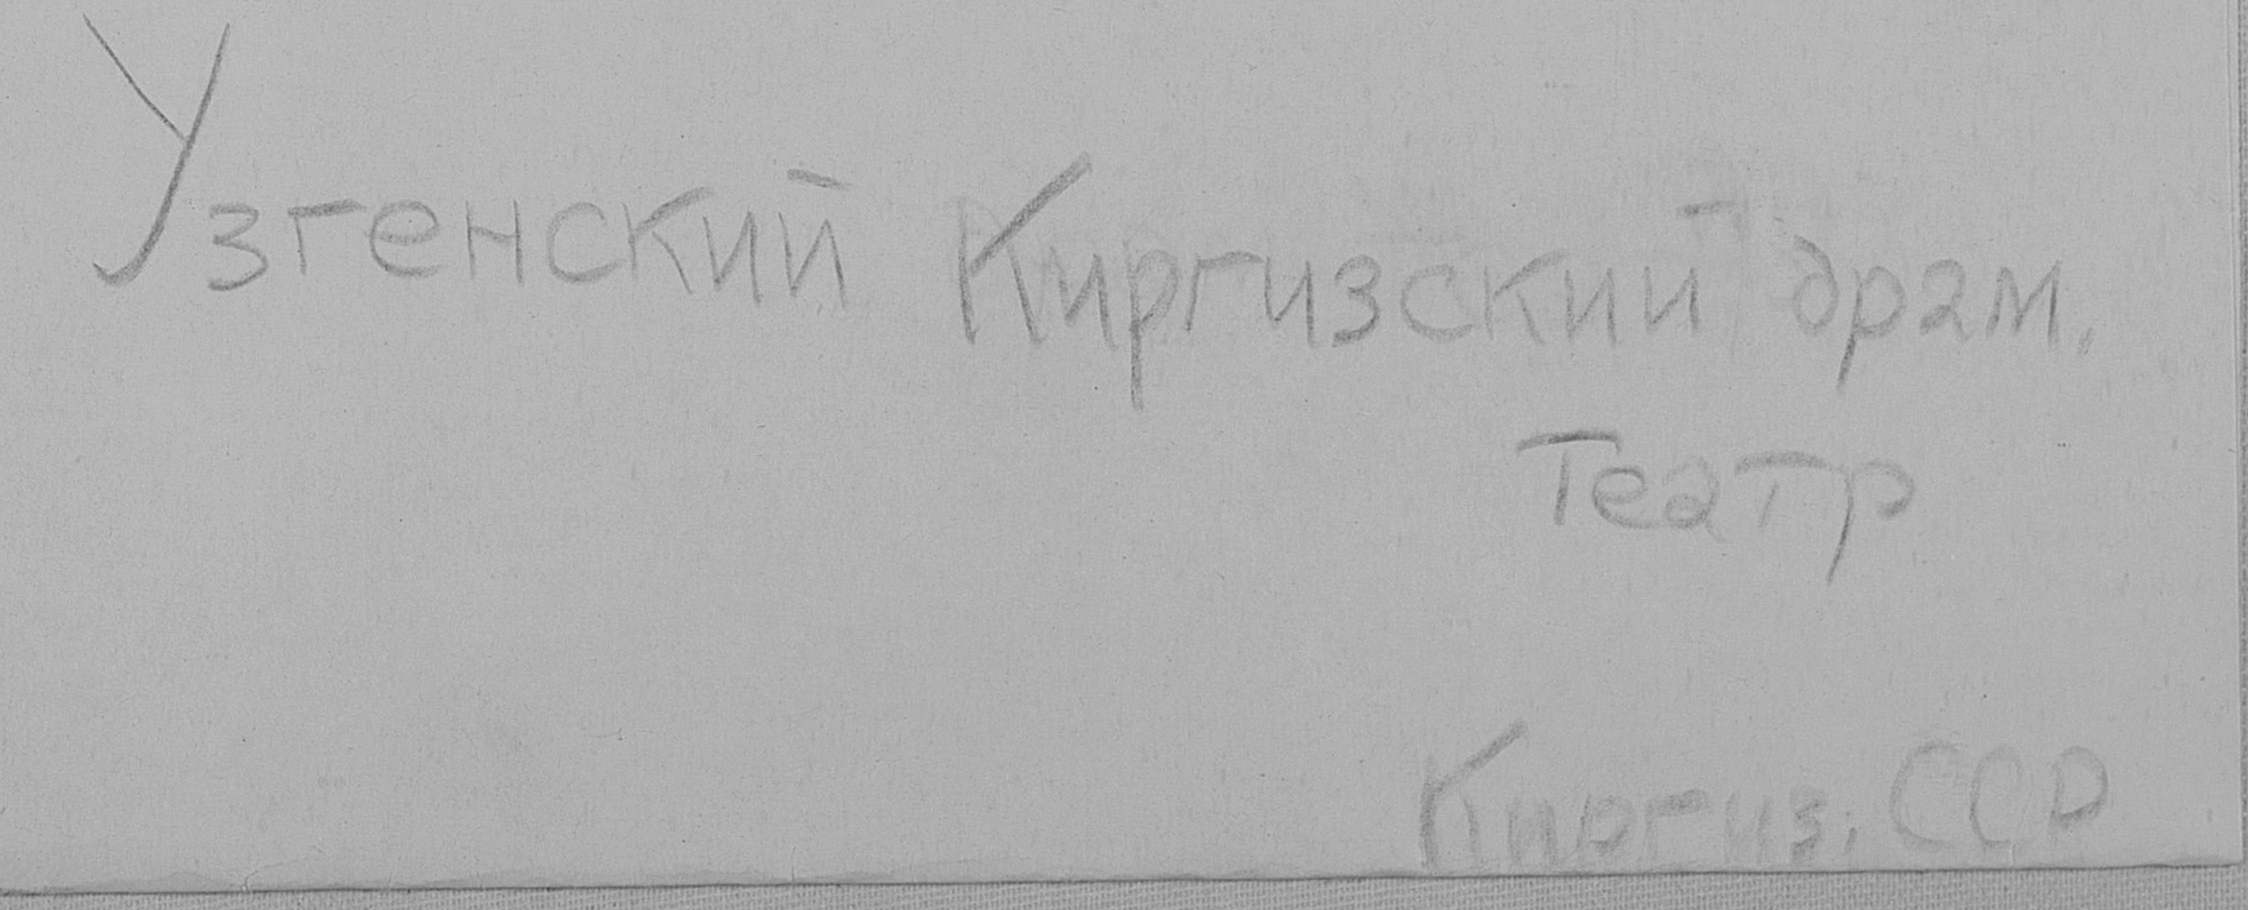 Узгенский Киргизский драм.
Театр
Киргиз. ССР